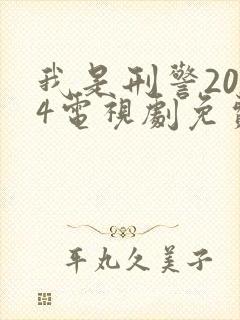 我是刑警20
4電視劇免
平丸久美子